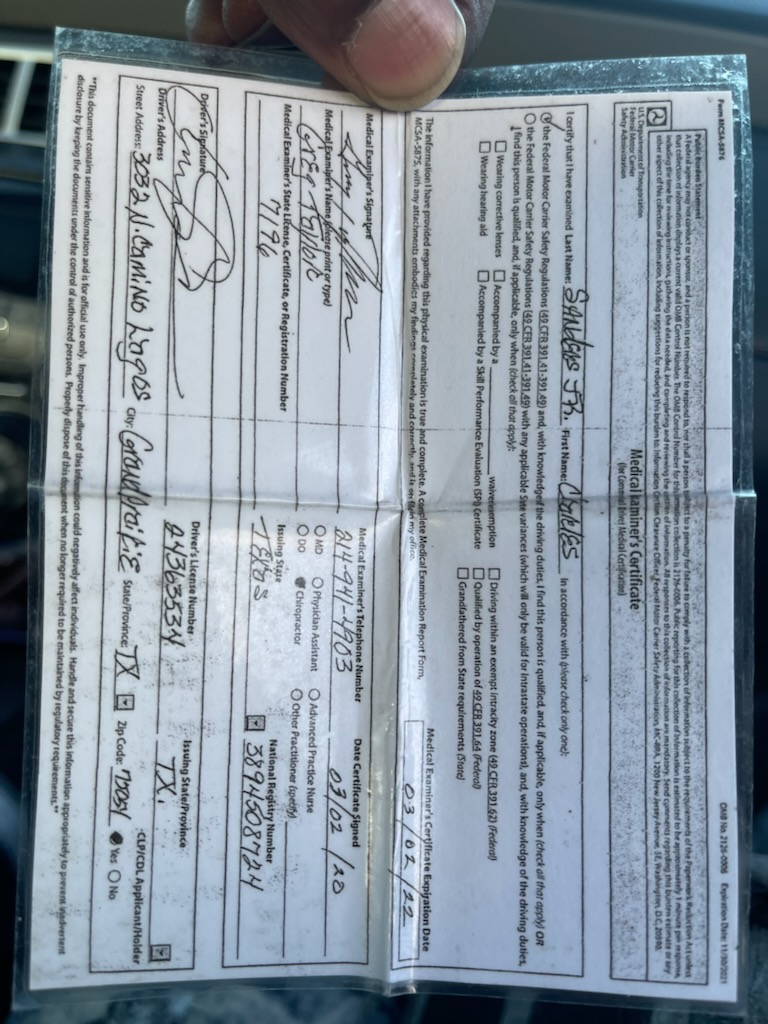 Form MCSA-5876
OMB No. 2126-0006 Expiration Date: 11/30/2021
Public Burden Statement
A federal agency may not conduct or sponsor, and a person is not required to respond to, nor shall a person be subject to a penalty for failure to comply with a collection of information subject to the requirements of the Paperwork Reduction Act unless
that collection of information displays a current valid OMB Control Number. The OMB Control Number for this information collection is 2126-0006. Public reporting for this collection of information is estimated to be approximately 1 minute per response,
including the time for reviewing instructions, gathering the data needed, and completing and reviewing the collection of information. All responses to this collection of information are mandatory. Send comments regarding this burden estimate or any
other aspect of this collection of information, including suggestions for reducing this burden to: Information Collection Clearance Officer, Federal Motor Carrier Safety Administration, MC-RRA, 1200 New Jersey Avenue, SE, Washington, D.C. 20590.
U.S. Department of Transportation
Federal Motor Carrier
Safety Administration
Medical Examiner's Certificate
(for Commercial Driver Medical Certification)
I certify that I have examined Last Name: Sanders JR. First Name: Charles In accordance with (please check only one):
the Federal Motor Carrier Safety Regulations (49 CFR 391.41-391.49) and, with knowledge of the driving duties, I find this person is qualified, and, if applicable, only when (check all that apply) OR
the Federal Motor Carrier Safety Regulations (49 CFR 391.41-391.49) with any applicable State variances (which will only be valid for intrastate operations), and, with knowledge of the driving duties,
I find this person is qualified, and, if applicable, only when (check all that apply):
Wearing corrective lenses Accompanied by a waiver/exemption Driving within an exempt intracity zone (49 CFR 391.62) (Federal)
Wearing hearing aid Accompanied by a Skill Performance Evaluation (SPE) Certificate Qualified by operation of 49 CFR 391.64 (Federal)
Grandfathered from State requirements (State)
The information I have provided regarding this physical examination is true and complete. A complete Medical Examination Report Form,
MCSA-5875, with any attachments embodies my findings completely and correctly, and is on file in my office.
Medical Examiner's Certificate Expiration Date
03/02/22
Medical Examiner's Signature
Medical Examiner's Telephone Number
214-941-4903
Date Certificate Signed
03/02/20
Medical Examiner's Name (please print or type)
Greg Taylor
MD Physician Assistant Advanced Practice Nurse
DO Chiropractor Other Practitioner (specify)
Medical Examiner's State License, Certificate, or Registration Number
7196
Issuing State
TEXAS
National Registry Number
3894508724
Driver's Signature
Driver's License Number
24363534
Issuing State/Province
TX.
Driver's Address
Street Address: 3032 N. Camino Lagos City: Grand Prairie State/Province: TX Zip Code: 75054
CLP/CDL Applicant/Holder
Yes No
**This document contains sensitive information and is for official use only. Improper handling of this information could negatively affect individuals. Handle and secure this information appropriately to prevent inadvertent
disclosure by keeping the documents under the control of authorized persons. Properly dispose of this document when no longer required to be maintained by regulatory requirements.**